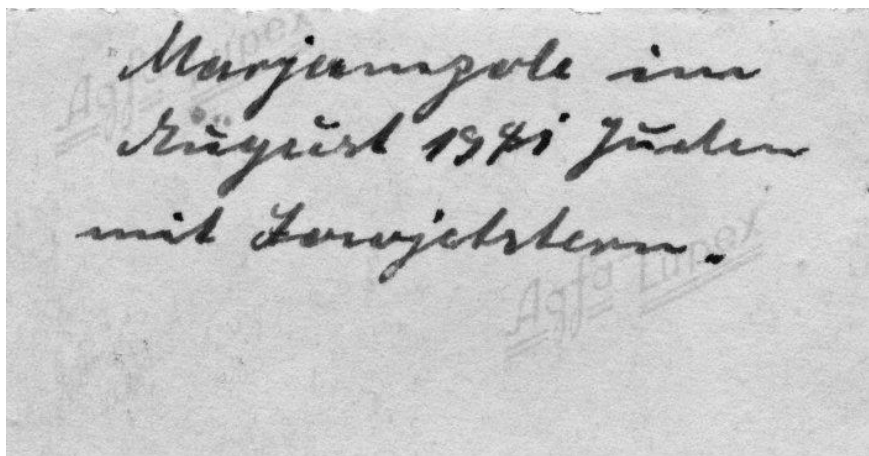 Marjampole im
August 1941 Juden
mit Sowjetstern.
Agfa Lupex
Agfa Lupex